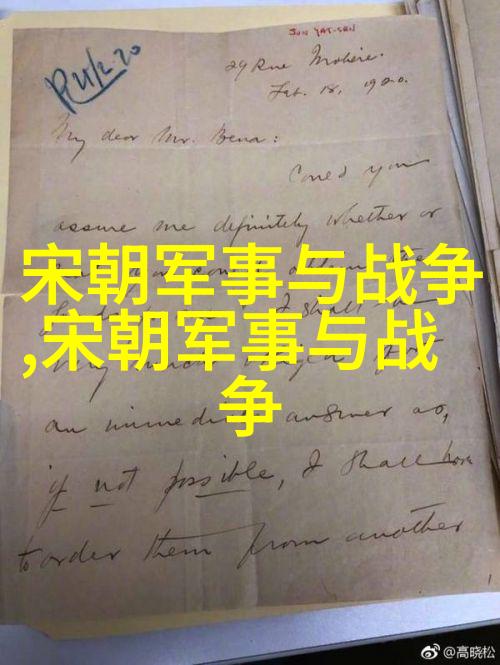 SUN YAT-SEN
R 21/2.20
29 Rue Molière.
Feb. 18, 1920.
My dear Mr. Bena:
Could you
assure me definitely whether or
宋朝军事与战争
,宋朝军事与战
争
I shall be
very much obliged for
an immediate answer as,
if not possible, I shall have
to order them from another
@高晓松